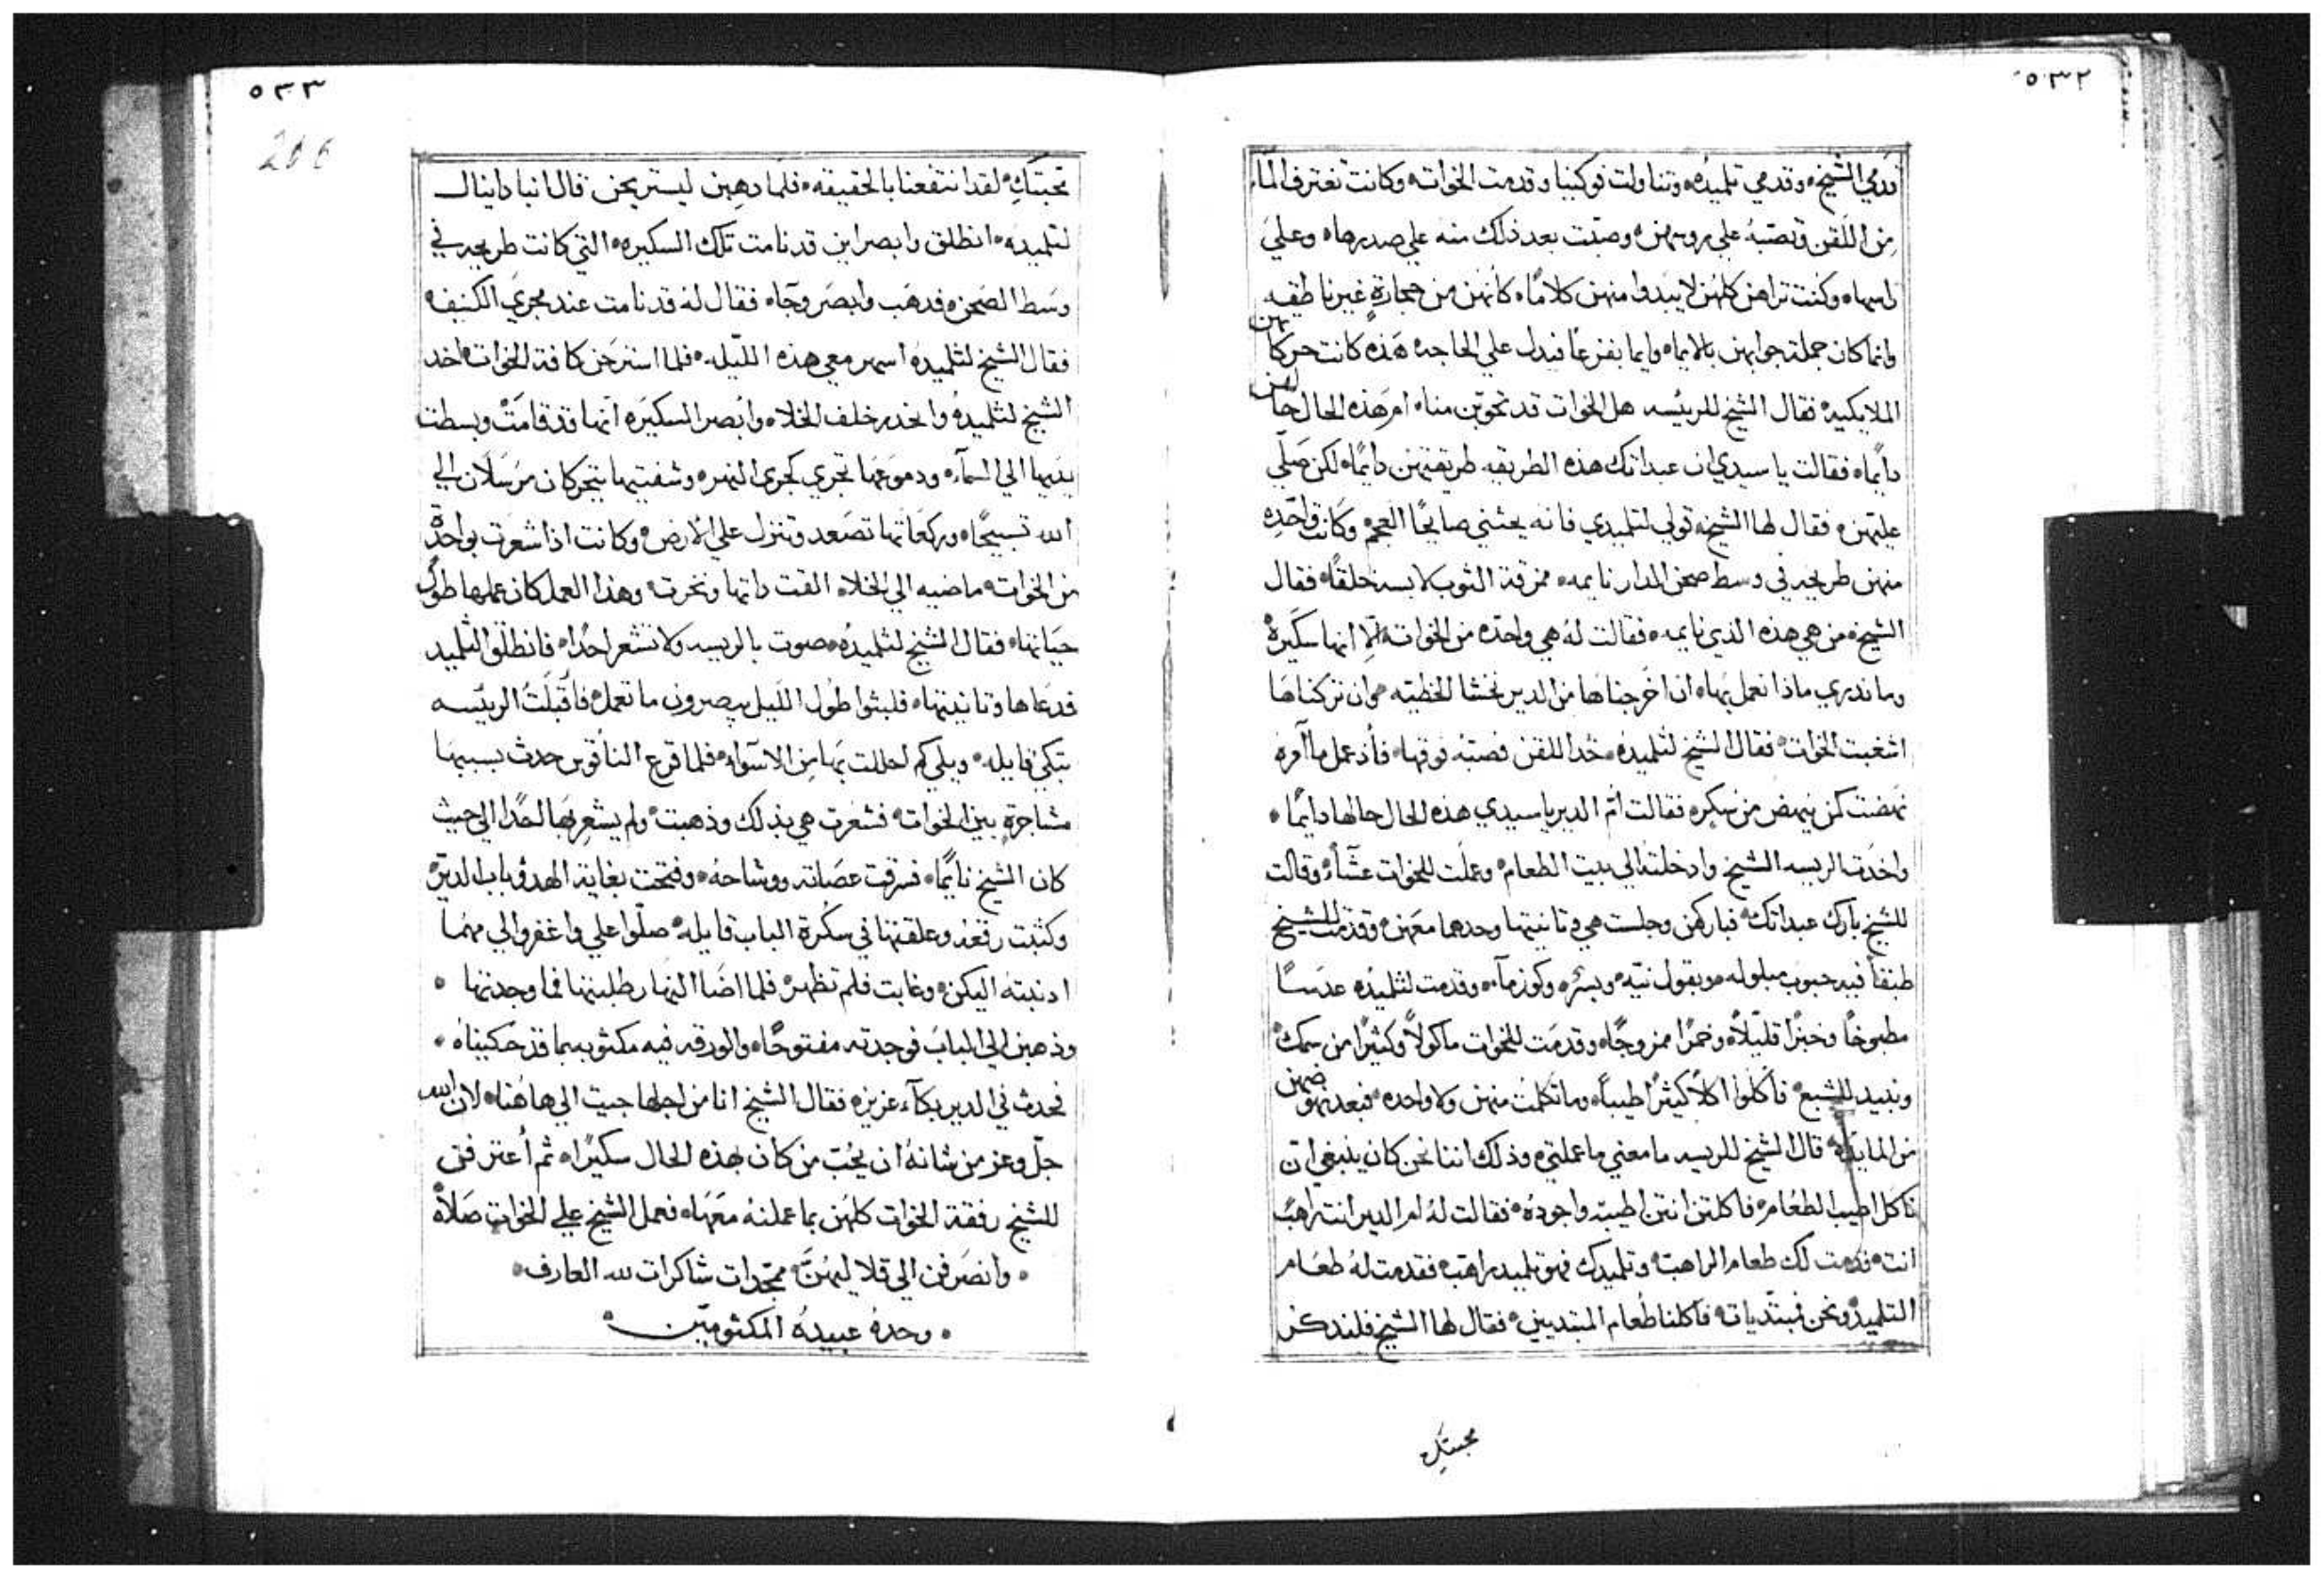 ٥٣٢
قدمي الشيخ، وقدمي تلميده، وتناولت فوكينا وقدمت الخوات، وكانت تغترف الماء
من اللقن وتصبه علي روسهن، وصبت بعد ذلك منه علي صدرها، وعلي
راسها، وكنت تراهن كلهن لا يبدوا منهن كلامًا، كأنهن من حجارةٍ غير ناطقه
وانما كان جملة جوابهن بالايماء وايما بقزعًا فيدل علي الحاجه هذه كانت حركاتهن
الملايكيه فقال الشيخ للريسه هل الخوات قد تحوبن منا، ام هذه الحال حالهن
دايمًا، فقالت يا سيدي ان عبداتك هذه الطريقه طريقتهن دايمًا، لكن صلي
عليهن، فقال لها الشيخ، قولي لتلميدي فانه يحثني صايحًا العجم، وكانت واحده
منهن طريحه في وسط صحن الدار نايمه، ممزقة الثوب لابسه خلقًا، فقال
الشيخ، من هي هذه الذي نايمه، فقالت له هي واحده من الخوات، الا انها سكيره
وما ندري ماذا نعمل بها، ان اخرجناها من الدير نخشا الخطيه، وان تركناها
اشغبت الخوات، فقال الشيخ لتلميده، خد اللقن فصبه فوقها، فأذ عمل ما آمره
نهضت كمن ينهض من سكره فقالت ام الدير يا سيدي هذه الحال حالها دايمًا،
واخدت الريسه الشيخ وادخلته الي بيت الطعام، وعملت للخوات عشآء، وقالت
للشيخ بارك عبداتك، فباركهن وجلست هي وتانيتها وحدها معهن، وقدمت للشيخ
طبقًا فيه حبوب مبلوله، وبقول نيه، وبسره وكوز مآء، وقدمت لتلميده عدسًا
مطبوخًا وخبزًا قليلًا، وخمرًا ممزوجًا، وقدمت للخوات ماكولًا وكثيرًا من سمك
ونبيد للشبع، فأكلوا اكلًا كثيرًا طيبًا، وما تكلمت منهن ولا واحده، فبعد نهوضهن
من المايده، قال الشيخ للريسه ما معني ما عملتي، وذلك اننا نحن كان ينبغي ان
ناكل اطيب الطعام، فاكلتن انتن اطيبه واجوده، فقالت له ام الدير انت راهب
انت، قدمت لك طعام الراهب، وتلميدك فهو تلميد راهب، فقدمت له طعام
التلميد، ونحن فمبتديات، فاكلنا طعام المبتديين، فقال لها الشيخ فلندكر
محبتك
٥٣٣
266
محبتك، لقد انتفعنا بالحقيقه، فلما دهبن ليستريحن قال انبا دانيال
لتلميده، انطلق وابصر اين قد نامت تلك السكيره، التي كانت طريحه في
وسط الصحن، فدهب وابصر وجاء، فقال له قد نامت عند مجري الكنيف،
فقال الشيخ لتلميده اسهر معي هذه الليله، فلما استرحن كافة الخوات، اخد
الشيخ لتلميده وانحدر خلف الخلاء، وابصر السكيره انها قد قامت، وبسطت
يديها الي السمآء، ودموعها تجري كمجري النهر، وشفتيها يتحركان مرسلان الي
الله تسبيحًا، وركعاتها تصعد وتنزل علي الارض، وكانت اذا شعرت بواحدة
من الخوات، ماضيه الي الخلاء، القت داتها ونخرت، وهذا العمل كان عملها طول
حياتها، فقال الشيخ لتلميده، صوت بالريسه ولا تشعر احدًا، فانطلق التلميد
فدعاها وتانيتها، فلبثوا طول الليل يبصرون ما تعمل، فاقبلت الريسه
تبكي قايله، ويلي كم احللت بها من الاسواء، فلما قرع الناقوس حدث بسببها
مشاجرة بين الخوات، فشعرت هي بذلك وذهبت، ولم يشعر بها احدًا الي حيث
كان الشيخ نايمًا، فسرقت عصاته ووشاحه، وفتحت بغاية الهدو باب الدير،
وكتبت رقعه وعلقتها في سكرة الباب قايله، صلوا علي واغفروا لي مهما
ادنبته اليكن، وغابت فلم تظهر، فلما اضا النهار طلبنها فما وجدنها،
وذهبن الي الباب فوجدته مفتوحًا، والورقه فيه مكتوبه بما قد حكيناه،
فحدث في الدير بكآء عزيز، فقال الشيخ انا من اجلها جيت الي هاهنا، لان الله
جل وعز من شانه ان يحب من كان بهذه الحال سكيرًا، ثم أعترفن
للشيخ رفقة الخوات كلهن بما عملنه معها، فعمل الشيخ علي الخوات صلاة
، وانصرفن الي قلاليهن، ممجدات شاكرات لله العارف،
، وحده عبيده المكتومين،